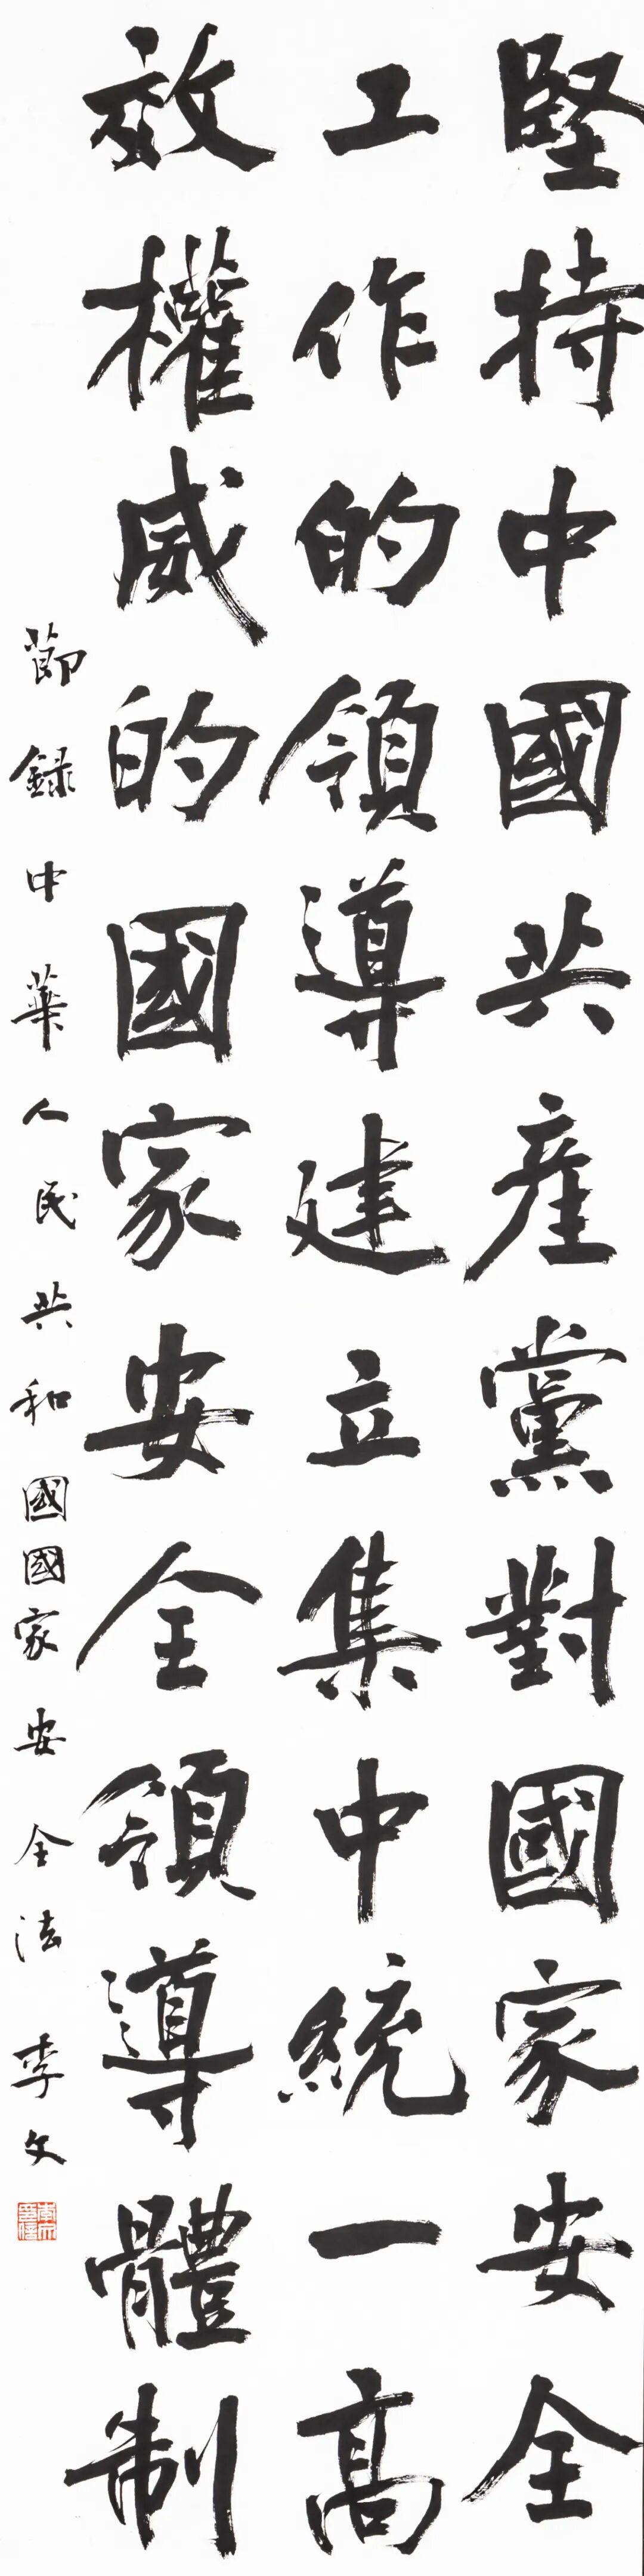 堅持中國共產黨對國家安全
工作的領導建立集中統一高
效權威的國家安全領導體制
節錄中華人民共和國國家安全法 李文